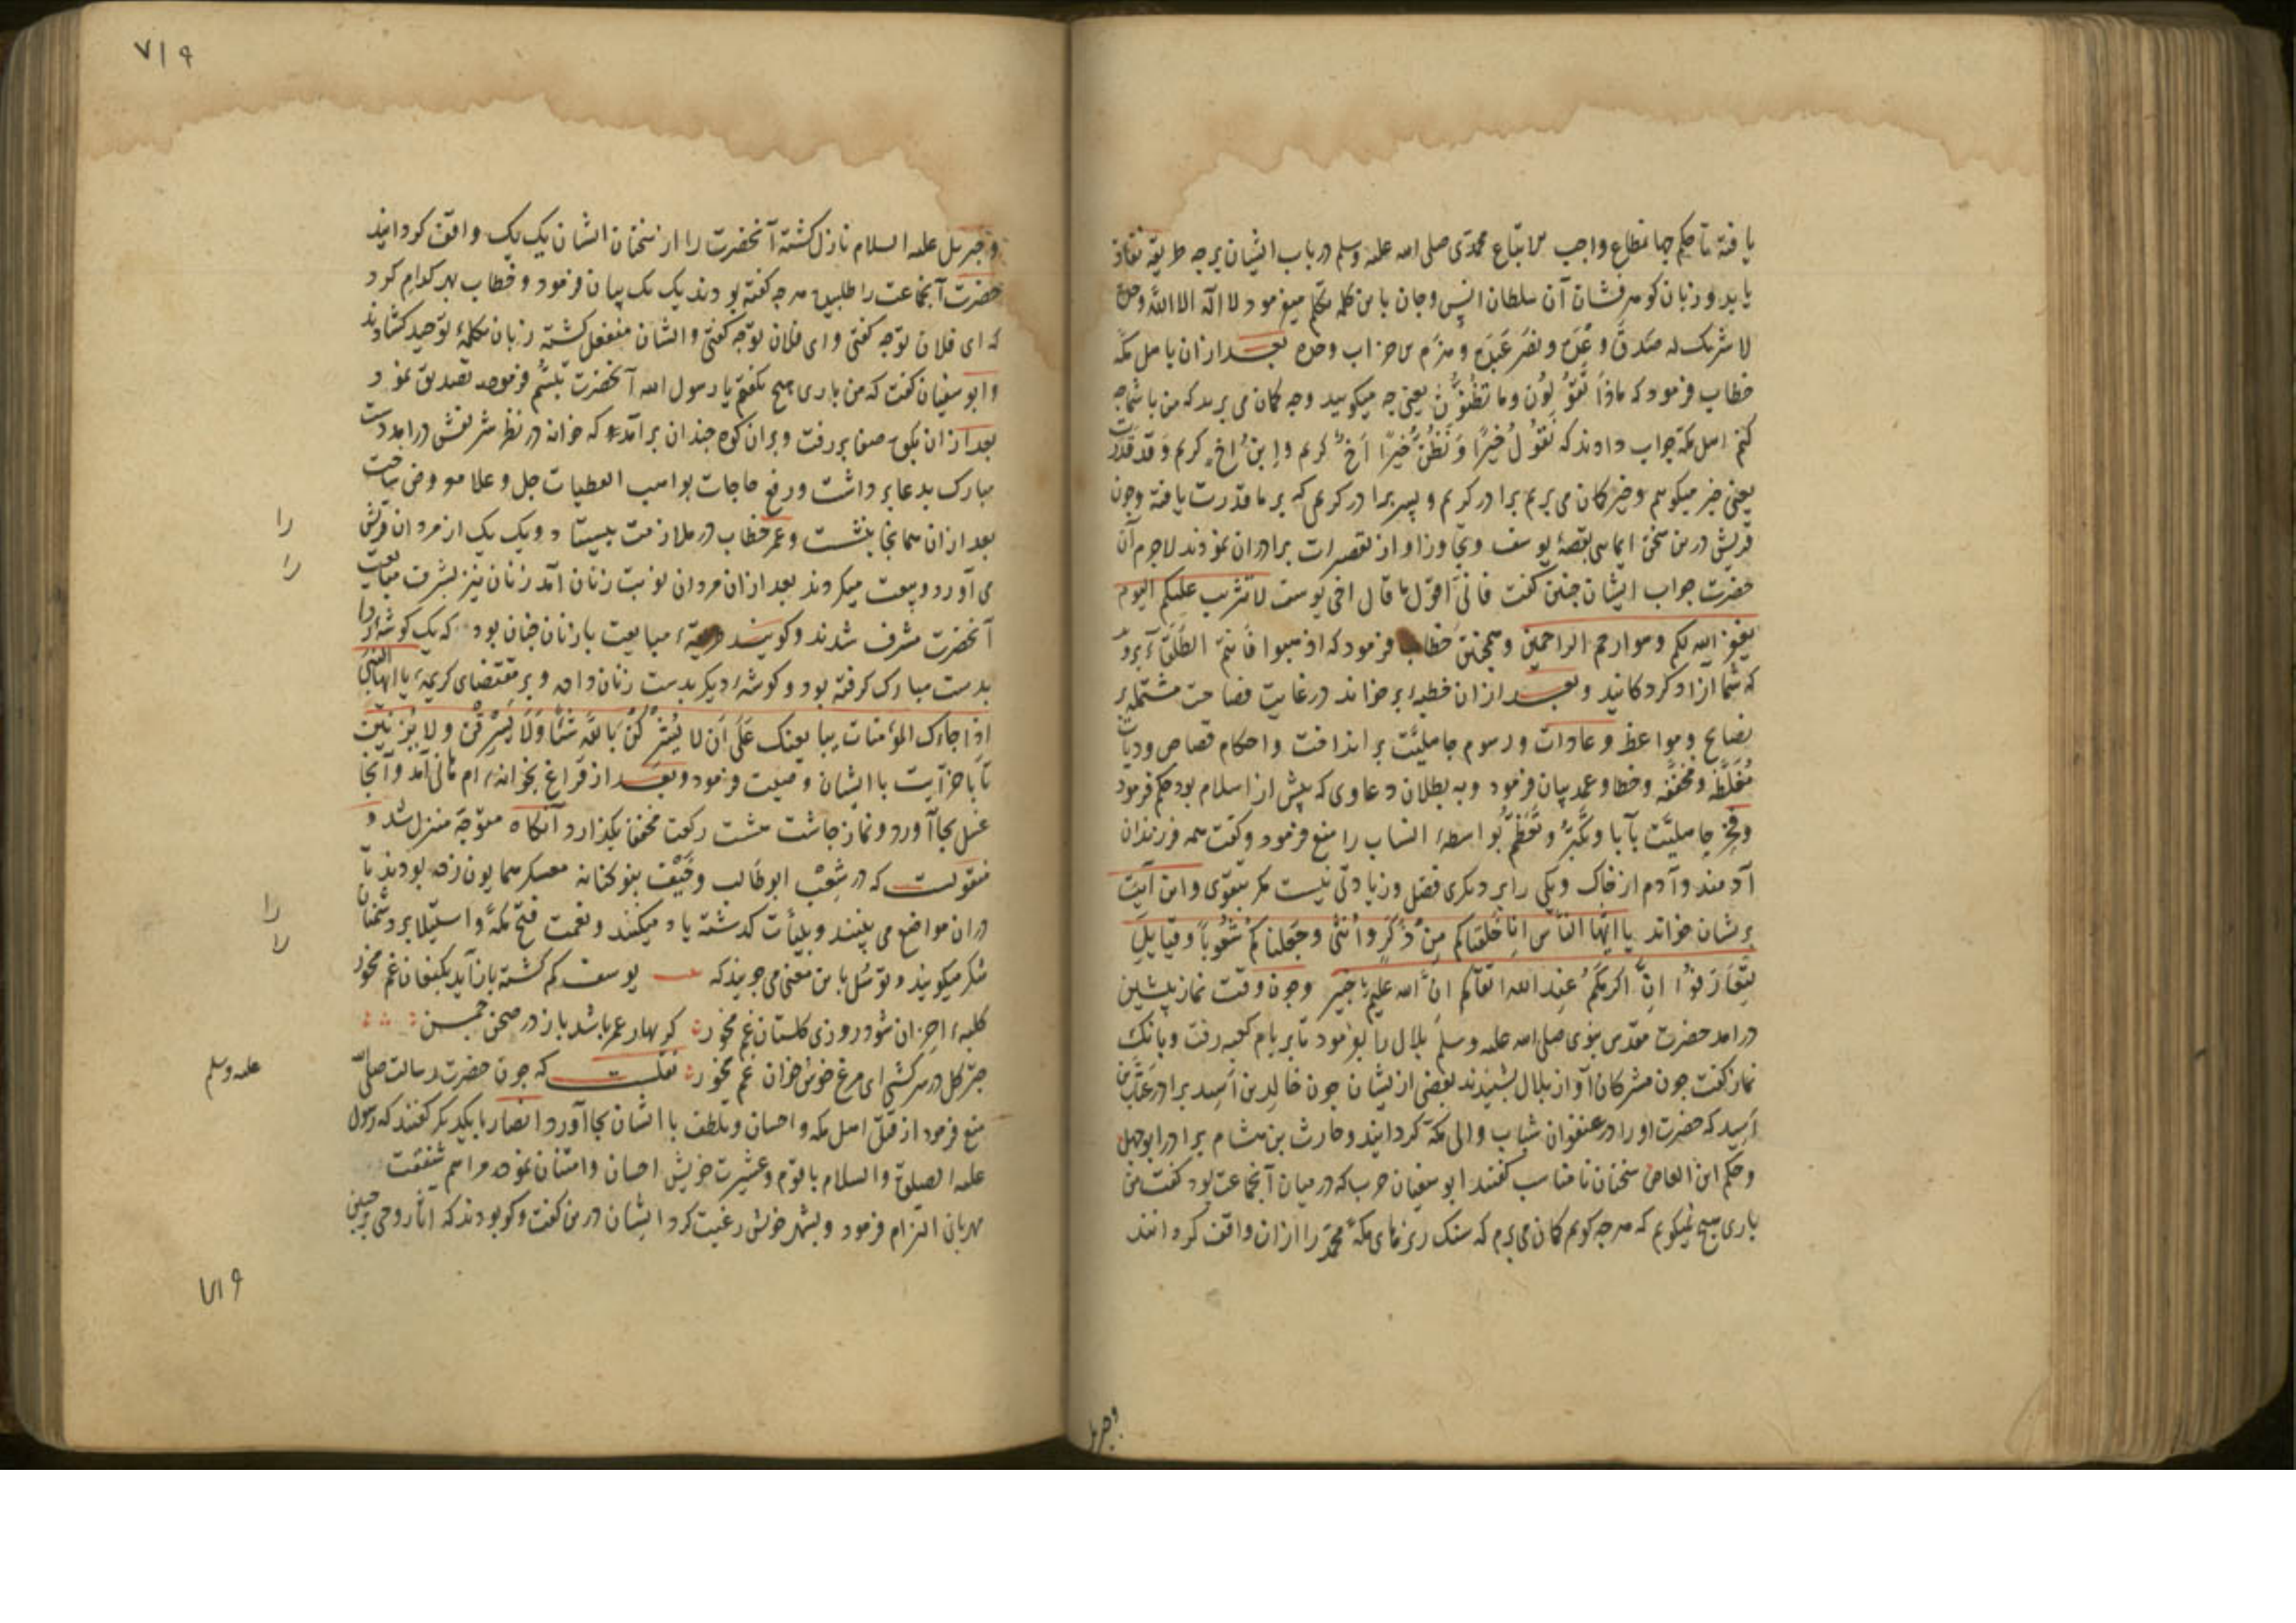 یافته تا حکم جهانمطاع واجب الاتباع محمدی صلی الله علیه وسلم در باب ایشان برچه طریقه نفاذ
یابد و زبان کوهرفشان آن سلطان انس وجان باین کلمه متکلم میفرمود لا اله الا الله وحده
لا شریک له صدق وعده ونصر عبده وهزم الاحزاب وحده بعد از ان باهل مکه
خطاب فرمود که ماذا تقولون وما تظنون یعنی چه میکویید وچه کمان می برید که من باشما چه
کنم اهل مکه جواب دادند که نقول خیرا ونظن خیرا اخ کریم وابن اخ کریم وقد قدرت
یعنی خیر میکوییم وخیر کمان می بریم برادر کریم و پسر برادر کریمی که بر ما قدرت یافته وچون
قریش درین سخن ایمایی بقصه یوسف وتجاوز او از تقصیرات برادران نمودند لاجرم آن
حضرت جواب ایشان چنین کفت فانی اقول ما قال اخی یوسف لا تثریب علیکم الیوم
یغفر الله لکم وهو ارحم الراحمین وهمچنین خطاب فرمود که اذهبوا فانتم الطلقاء بروید
که شما ازاد کردکانید وبعد از ان خطبه برخواند در غایت فصاحت مشتمل بر
نصایح ومواعظ وعادات ورسوم جاهلیت برانداخت واحکام قصاص ودیات
مغلظه ومخففه وخطا وعمد بیان فرمود وبه بطلان دعاوی که پیش از اسلام بود حکم فرمود
وفخر جاهلیت بآبا وتکبر وتعظم بواسطه انساب را منع فرمود وکفت همه فرزندان
آدمند وآدم از خاک ویکی را بر دیکری فضل وزیادتی نیست مکر بتقوی واین آیت
برشان خواند یا ایها الناس انا خلقناکم من ذکر وانثی وجعلناکم شعوبا وقبایل
لتعارفوا ان اکرمکم عند الله اتقاکم ان الله علیم خبیر وچون وقت نماز پیشین
درامد حضرت مقدس نبوی صلی الله علیه وسلم بلال را بفرمود تا بر بام کعبه رفت وبانک
نماز کفت چون مشرکان آواز بلال بشنیدند بعضی از یشان چون خالد بن اسید برادر عتاب بن
اسید که حضرت او را در عنفوان شباب والی مکه کردانید وحارث بن هشام برادر ابوجهل
وحکم ابن العاص سخنان نامناسب کفتند ابوسفیان حرب که در میان آنجماعت بود کفت من
باری هیچ نمیکویم که هرچه کویم کمان می برم که سنک ریزهای مکه محمد را ازان واقف کردانند
وجبریل
۷۱۹
وجبریل علیه السلام نازل کشته آنحضرت را از سخنان ایشان یک یک واقف کردانید
حضرت آنجماعت را طلبیده هرچه کفته بودند یک یک بیان فرمود وخطاب بهر کدام کرد
که ای فلان توچه کفتی وای فلان توچه کفتی وایشان منفعل کشته زبان بکلمه توحید کشادند
وابوسفیان کفت که من باری هیچ نکفتم یا رسول الله آنحضرت تبسم فرموده تصدیق نمود
بعد ازان بکوه صفا بر رفت وبران کوه چندان برآمد که خانه در نظر شریفش درامد دست
مبارک بدعا برداشت ورفع حاجات بواهب العطیات جل وعلا معروض ساخت
بعد ازان همانجا بنشست وعمر خطاب در ملازمت بیستاد ویک یک از مردان قریش را
می آورد وبیعت میکردند بعد ازان مردان نوبت زنان آمد زنان نیز بشرف مبایعت
آنحضرت مشرف شدند وکویند کیفیة مبایعت بازنان چنان بود که یک کوشه ردا
بدست مبارک کرفته بود وکوشه دیکر بدست زنان داده وبر مقتضای کریمه یا ایها النبی
اذا جاءک المؤمنات یبایعنک علی ان لا یشرکن بالله شیئا ولا یسرقن ولا یزنین
تا باخر آیت با ایشان وصیت فرمود وبعد از فراغ بخوانه ام هانی آمد وآنجا
غسل بجا آورد ونماز چاشت هشت رکعت مخفف بکذارد آنکاه متوجه منزل شد و
منقولست که در شعب ابوطالب وخیف بنوکنانه معسکر همایون زده بودند تا
دران مواضع می بینند وبلیات کذشته یاد میکنند ونعمت فتح مکه واستیلا بر دشمنان را
شکر میکویند وتوسل باین معنی می جویند که یوسف کم کشته باز آید بکنعان غم مخور
کلبه احزان شود روزی کلستان غم مخور کر بهار عمر باشد باز در صحن چمن
چتر کل در سر کشی ای مرغ خوش خوان غم مخور نقلست که چون حضرت رسالت صلی الله
علیه وسلم
منع فرمود از قتل اهل مکه واحسان وتلطف با ایشان بجا آورد انصار بایکدیکر کفتند که رسول
علیه الصلوة والسلام باقوم وعشیرت خویش احسان وامتنان نموده مراسم شفقت
مهربانی التزام فرمود وبشهر خویش رغبت کرد ایشان درین کفت وکو بودند که آثار وحی بر جبین
۷۱۹